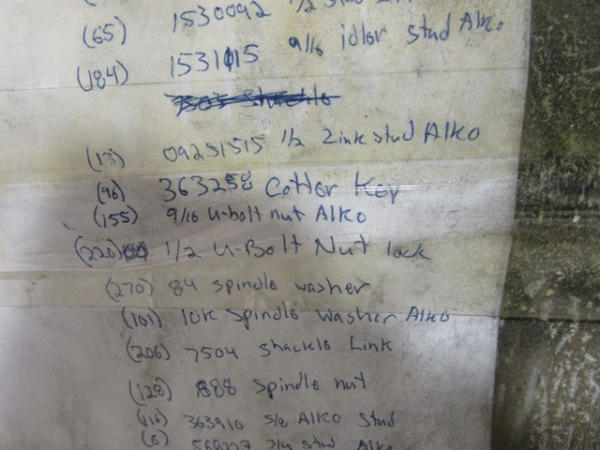 (65) 1530092 1/2
(184) 1531115 9/16 idler stud Alko
(13) 09251515 1/2 Zink stud Alko
(96) 363258 Cotter Key
(155) 9/16 U-bolt nut Alko
(220) 1/2 U-Bolt Nut lock
(270) 84 spindle washer
(101) 10K Spindle Washer Alko
(206) 7504 Shackle Link
(128) 888 Spindle nut
(116) 363910 5/8 Alko Stud
(6) 569227 3/4 stud Alko